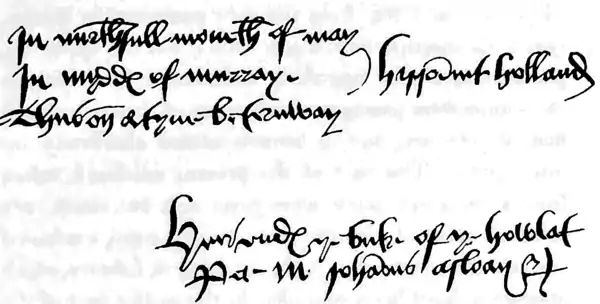 In mirthfull moneth of may
In myddis of murray
Thus on a tyme be ternway
happinit holland
Heir endis ye buke of ye howlat
Per M. Johannes asloan